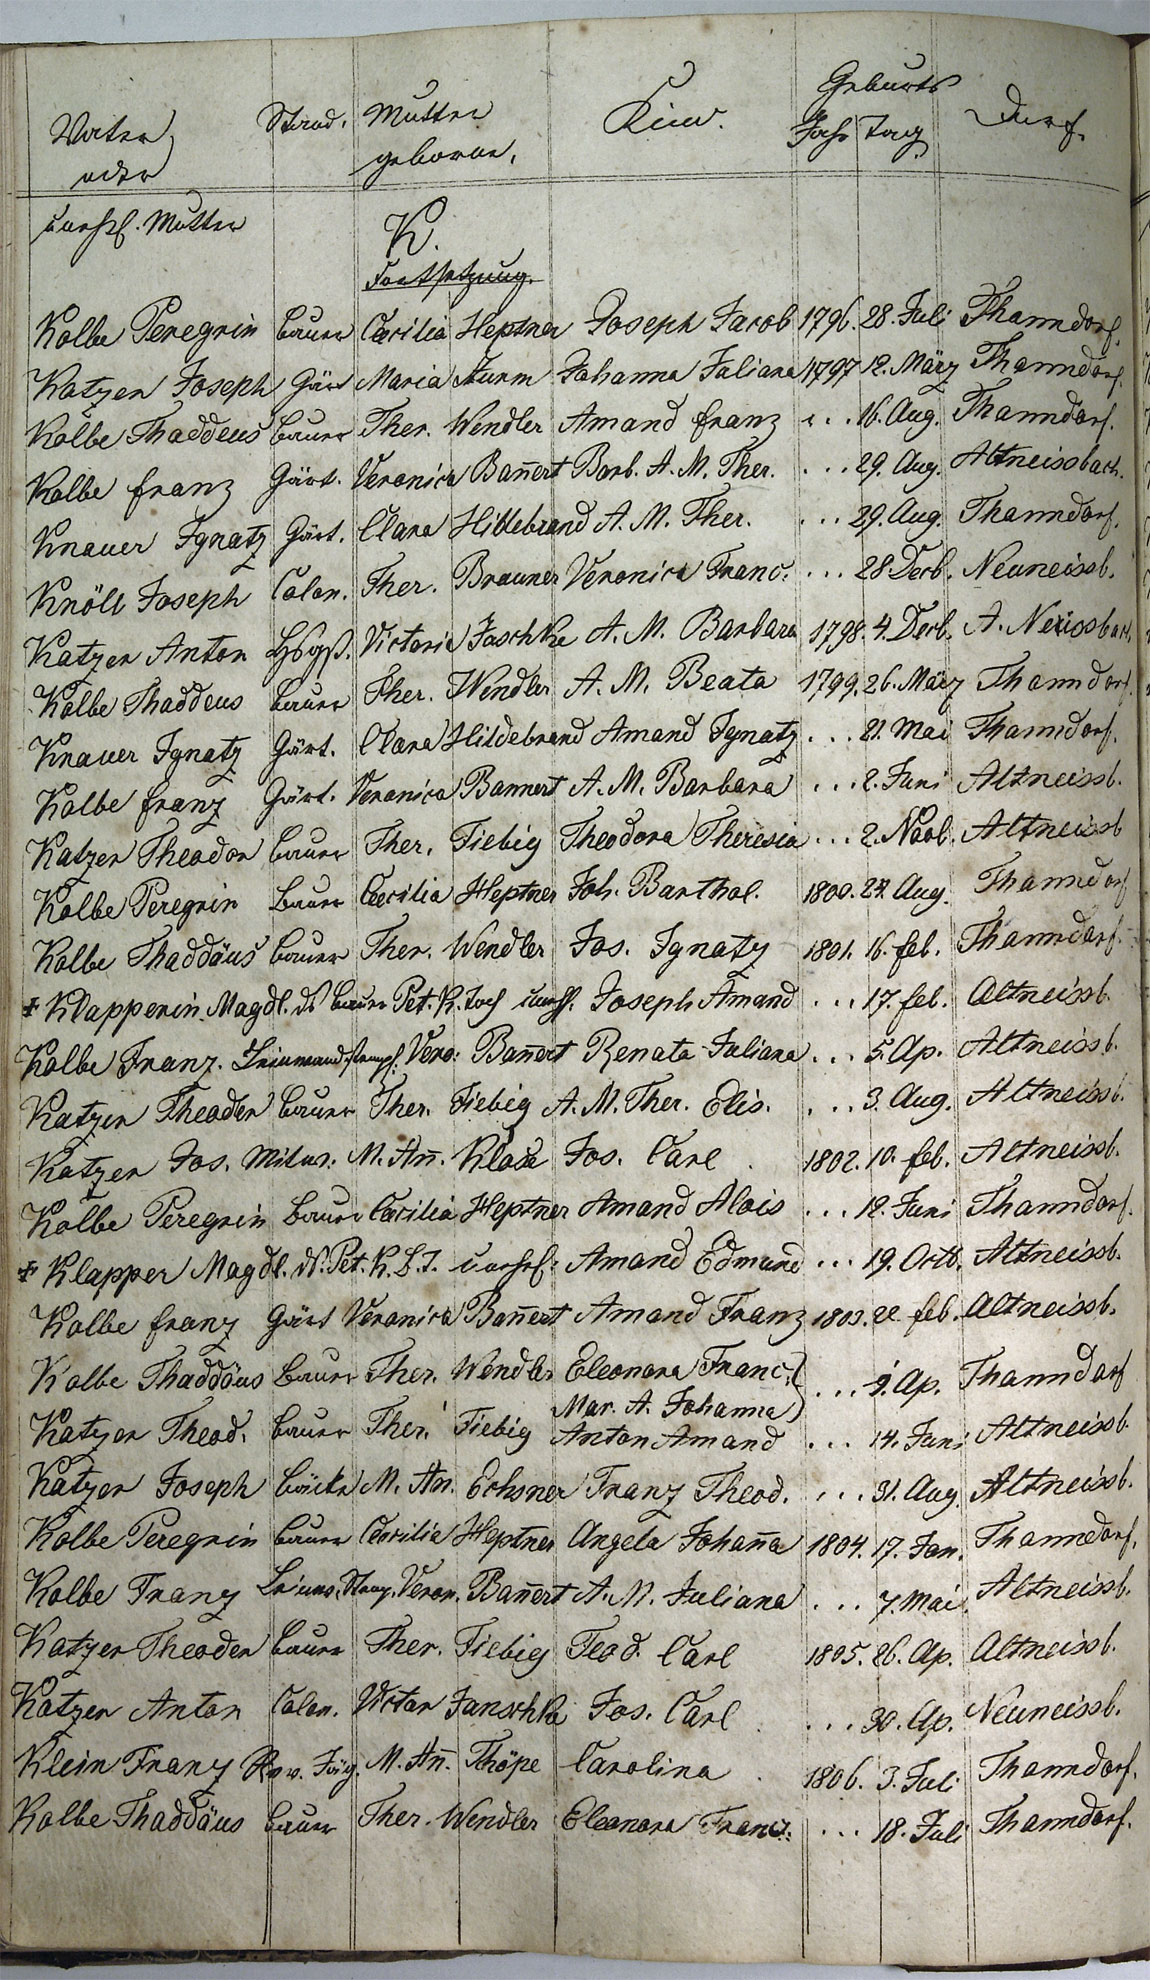 Geburts
Vater Stand. Mutter Kind. Jahr Tag Dorf.
oder geborne.
unehl. Mutter K.
Fortsetzung.
Kolbe Peregrin Bauer Cæcilia Heptner Joseph Jacob 1796. 28. Juli Thanndorf.
Katzer Joseph Gärt Maria Sturm Johanna Juliana 1797 12. März Thanndorf.
Kolbe Thaddeus Bauer Ther. Wendler Amand Franz ... 16. Aug. Thanndorf.
Kolbe Franz Gärt. Veronica Ban̄ert Barb. A. M. Ther. ... 29. Aug. Altneissbach.
Knauer Ignatz Gärt. Clara Hillebrand A. M. Ther. ... 29. Aug. Thanndorf.
Knöll Joseph Colon. Ther. Brauner Veronica Franc. ... 28 Decb. Neuneissb.
Katzer Anton Victoria Jaschke A. M. Barbara 1798. 4. Decb. A. Neissbach.
Kolbe Thaddeus Bauer Ther. Wendler A. M. Beata 1799. 26. März Thanndorf.
Knauer Ignatz Gärt. Clara Hildebrand Amand Ignatz ... 21. Mai Thanndorf.
Kolbe Franz Gärt. Veronica Bannert A. M. Barbara ... 2. Juni Altneissb.
Katzer Theodor Bauer Ther. Fiebig Theodora Theresia ... 2. Novb. Altneissb
Kolbe Peregrin Bauer Cæcilia Heptner Joh. Barthol. 1800. 24. Aug. Thanndorf
Kolbe Thaddäus Bauer Ther. Wendler Jos. Ignatz 1801. 16. Feb. Thanndorf.
+ Klapperin Magdl. ds Bauer Pet. K. Toch unehl. Joseph Amand ... 17. Feb. Altneissb.
Kolbe Franz. Leinwandstempl. Vero: Ban̄ert Renata Juliana ... 5. Ap. Altneissb.
Katzer Theoder Bauer Ther. Fiebig A. M. Ther. Elis. ... 3. Aug. Altneissb.
Katzer Jos. M. An̄. Klose Jos. Carl 1802. 10. Feb. Altneissb.
Kolbe Peregrin Bauer Cæcilia Heptner Amand Alois ... 12. Juni Thanndorf.
+ Klapper Magdl. ds. Pet. K. B. T. unehel: Amand Edmund ... 19. Octb. Altneissb.
Kolbe Franz Gärt Veronica Ban̄ert Amand Franz 1803. 22 Feb. Altneissb.
Kolbe Thaddäus Bauer Ther. Wendler Eleonora Franc. ... 9. Ap. Thanndorf
Mar. A. Johanna
Katzer Theod. Bauer Ther. Fiebig Anton Amand ... 14. Juni Altneissb.
Katzer Joseph Bäcker M. An. Echsner Franz Theod. ... 31. Aug Altneissb.
Kolbe Peregrin Bauer Cæcilia Heptner Angela Johan̄a 1804. 17. Jan. Thanndorf.
Kolbe Franz Leinw. Stemp. Veron. Ban̄ert A. M. Juliana ... 7. Mai. Altneissb.
Katzer Theoder Bauer Ther. Fiebig Teod. Carl 1805. 26. Ap. Altneissb.
Katzer Anton Colon. Victor Janschke Jos. Carl ... 30. Ap. Neuneissb.
Klein Franz Rev. Jäg. M. An̄. Thöpe Carolina 1806. 3. Juli Thanndorf.
Kolbe Thaddäus Bauer Ther. Wendler Eleonora Franc: ... 18. Juli Thanndorf.